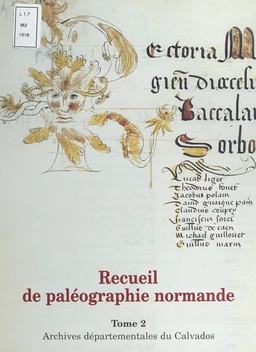 L 1.7
M2
1516
Rectoria M
gień diœceli
Baccalau
Sorbo
Lucas liger
Theodorus bouet
Jacobus polain
Dauid guiaigne pain
Claudius
Franciscus forel
Guillū de caen
Michael guillouet
Guillū marin
Recueil
de paléographie normande
Tome 2
Archives départementales du Calvados